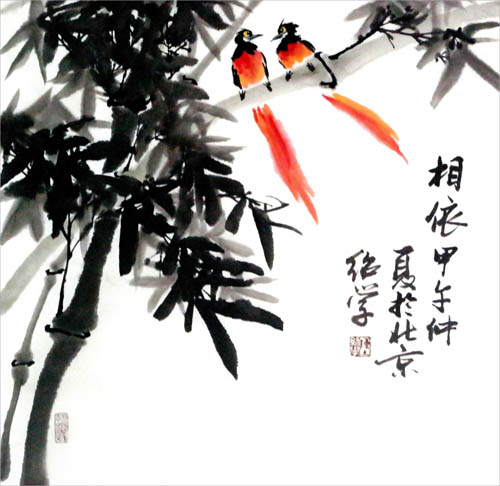 相依甲午仲
夏於北京
绍学